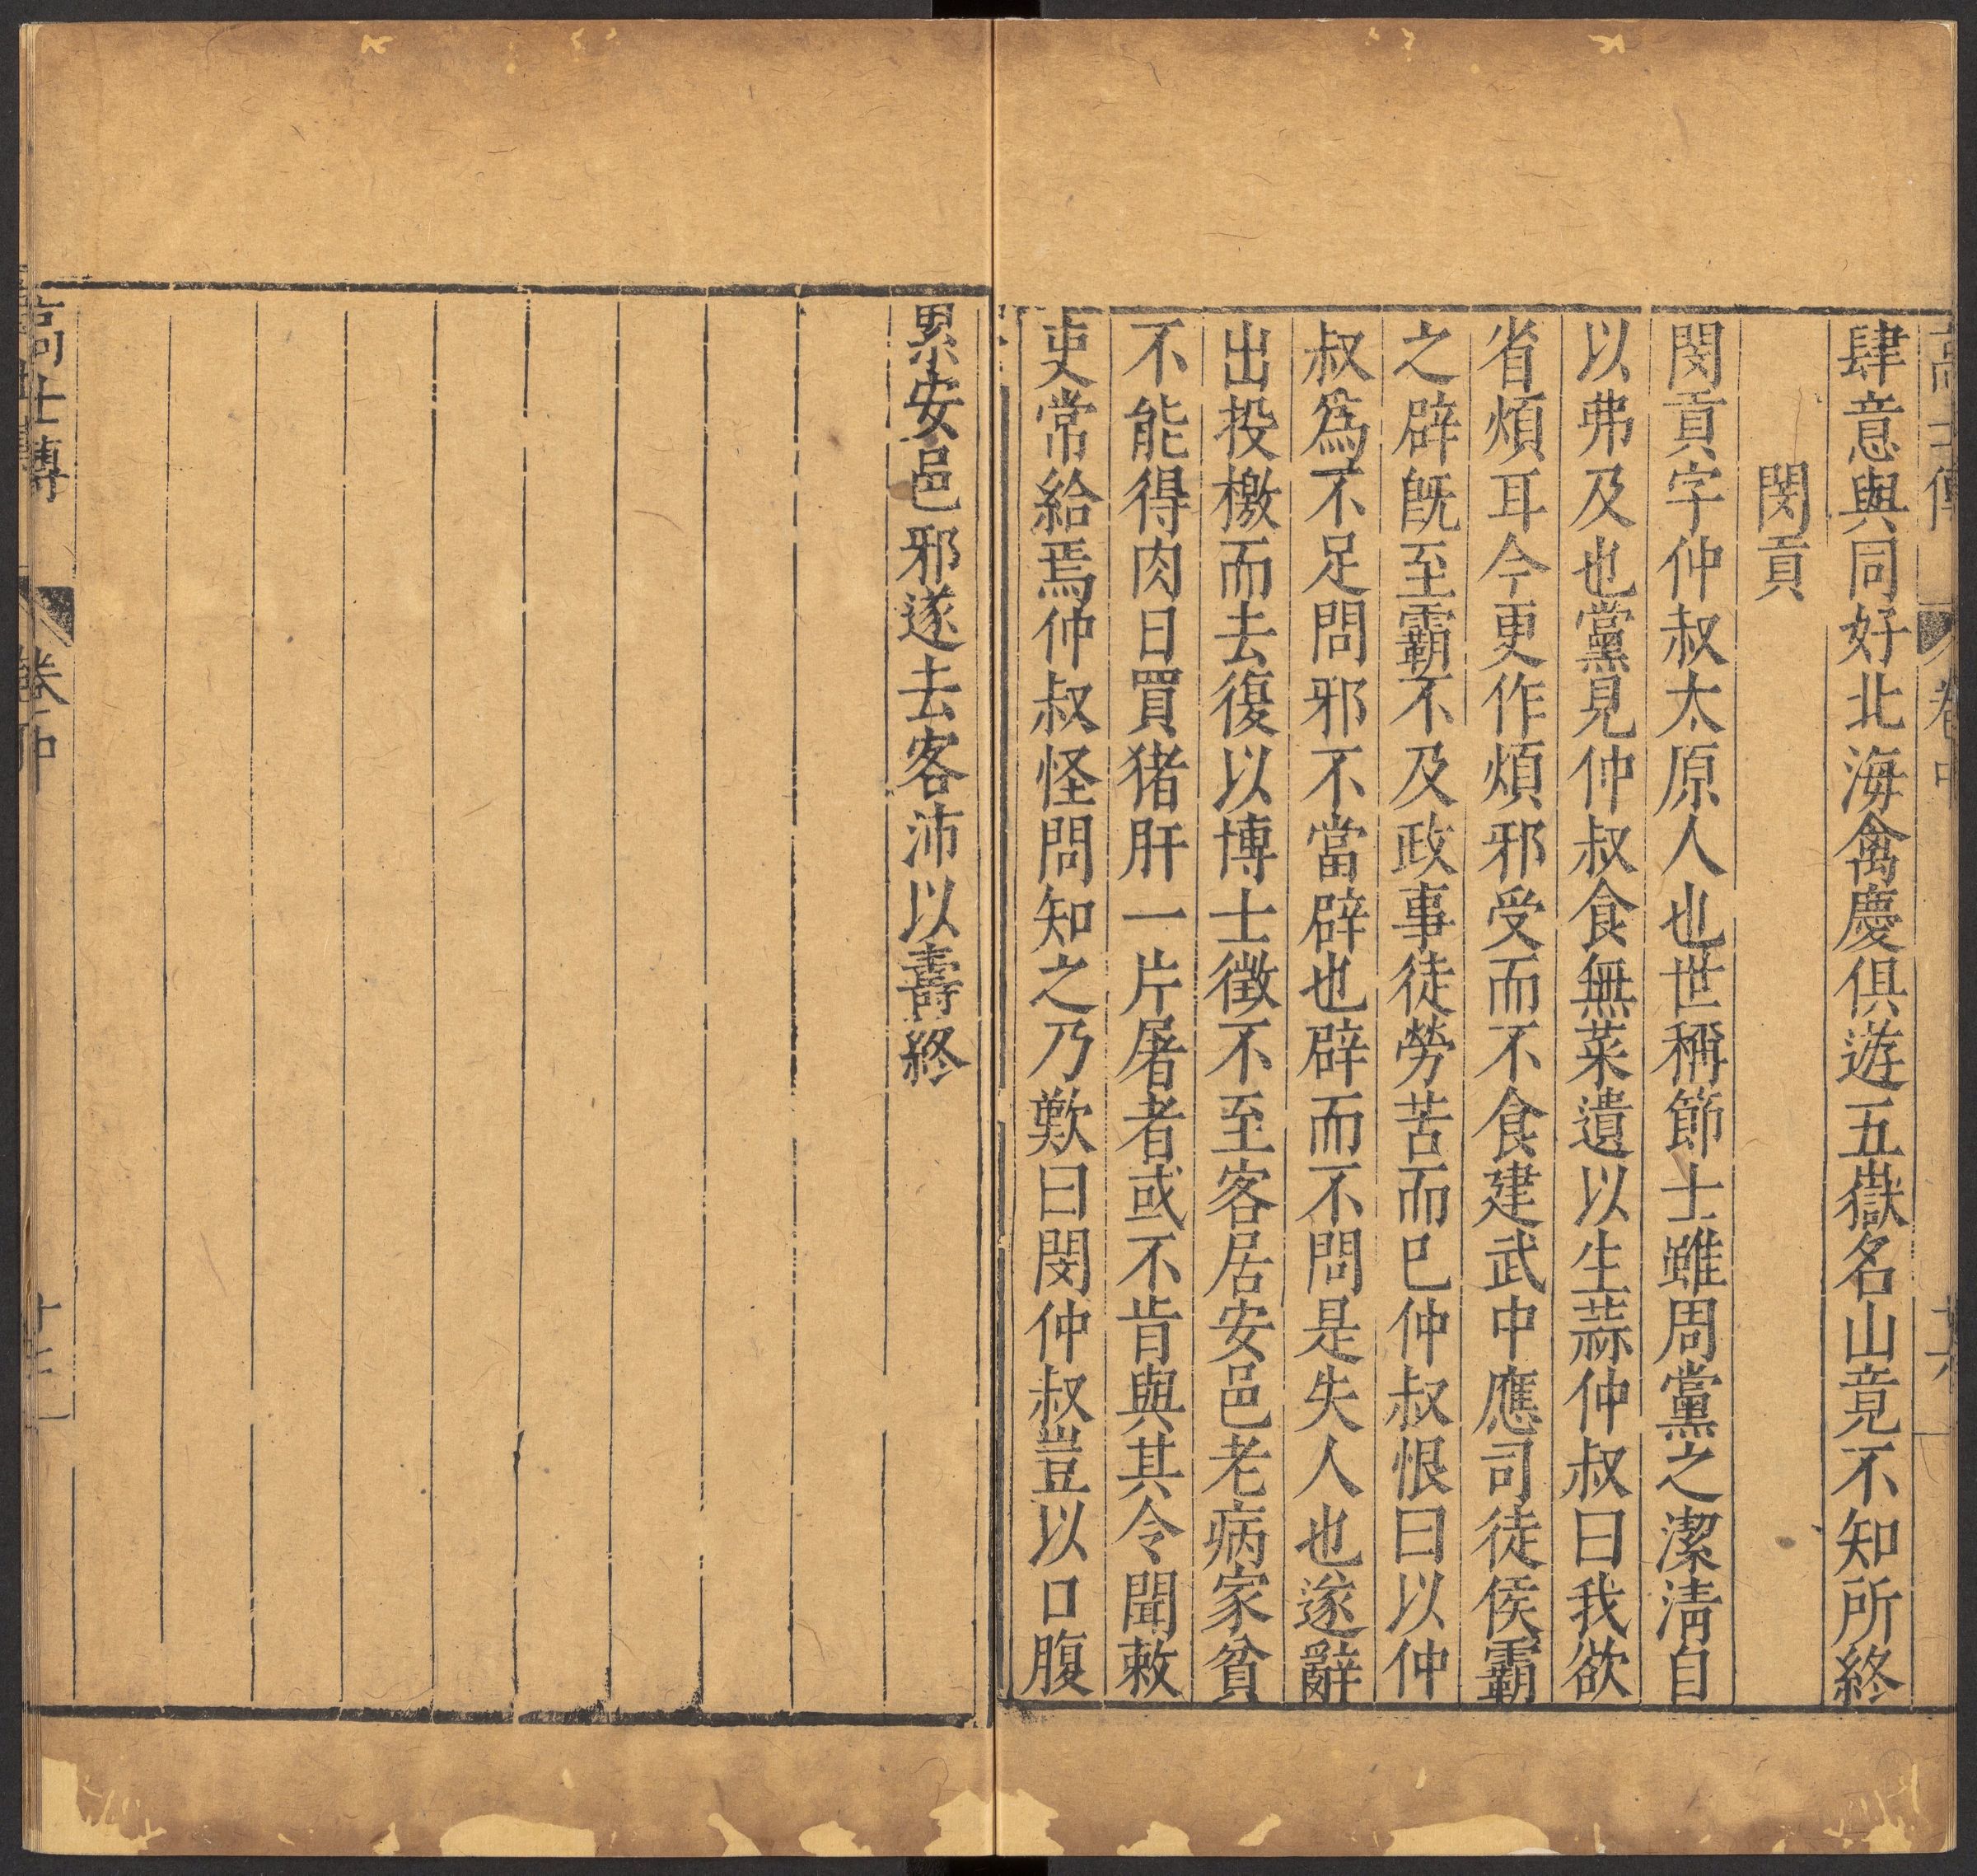 高士傳 卷中
肆意與同好北海禽慶俱遊五嶽名山竟不知所終
閔貢
閔貢字仲叔太原人也世稱節士雖周黨之潔淸自
以弗及也黨見仲叔食無菜遺以生蒜仲叔曰我欲
省煩耳今更作煩邪受而不食建武中應司徒侯霸
之辟旣至霸不及政事徒勞苦而已仲叔恨曰以仲
叔爲不足問邪不當辟也辟而不問是失人也遂辭
出投檄而去復以博士徵不至客居安邑老病家貧
不能得肉日買猪肝一片屠者或不肯與其令聞敕
吏常給焉仲叔怪問知之乃歎曰閔仲叔豈以口腹
累安邑邪遂去客沛以壽終
高士傳 卷中